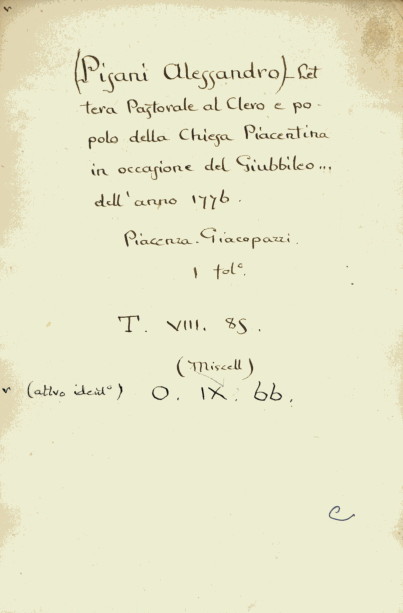 (Pisani Alessandro) Let
tera Pastorale al Clero e po-
polo della Chiesa Piacentina
in occasione del Giubbileo...
dell'anno 1776.
Piacenza. Giacopazzi.
1 fol°.
T. VIII. 85.
(Miscell)
v (altro ident°) O. IX. 66.
C